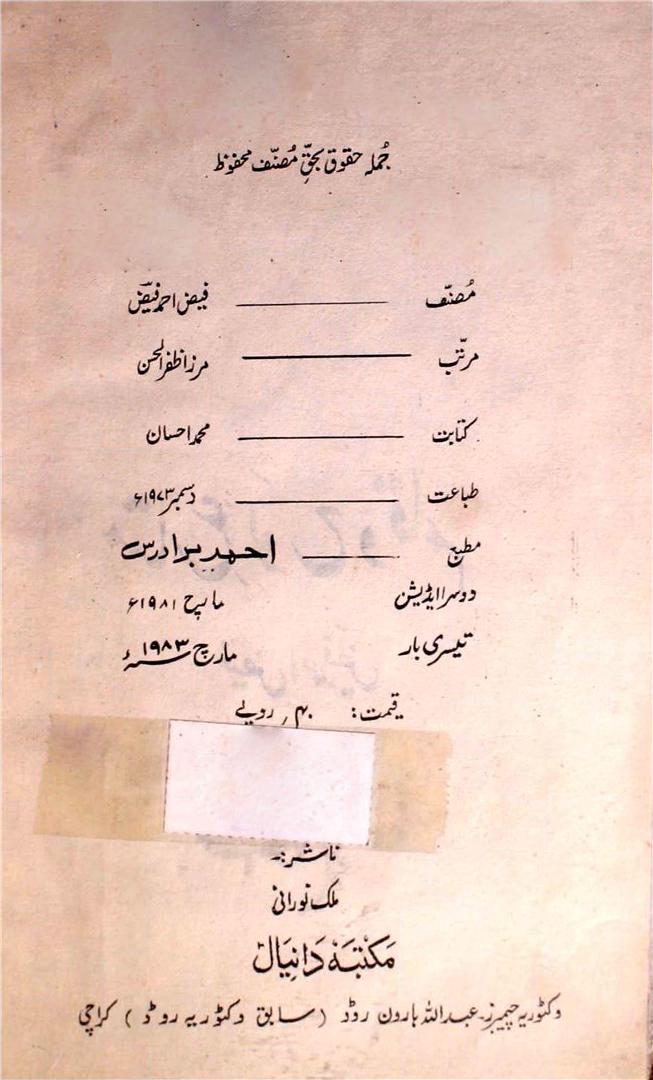 جُملہ حقوق بحقِّ مُصنّف محفوظ
مُصنّف ــــــــ فیض احمد فیضؔ
مرتّب ــــــــ مرزا ظفر الحسن
کتابت ــــــــ محمد احسان
طباعت ــــــــ دسمبر ۱۹۷۳ء
مطبع ــــــــ احمد برادرس
دوسرا ایڈیشن مارچ ۱۹۸۱ء
تیسری بار مارچ ۱۹۸۳ء
قیمت: روپے
ناشر:۔
ملک نورانی
مکتبۂ دانیال
وکٹوریہ چیمبرز۔ عبداللہ ہارون روڈ (سابق وکٹوریہ روڈ) کراچی